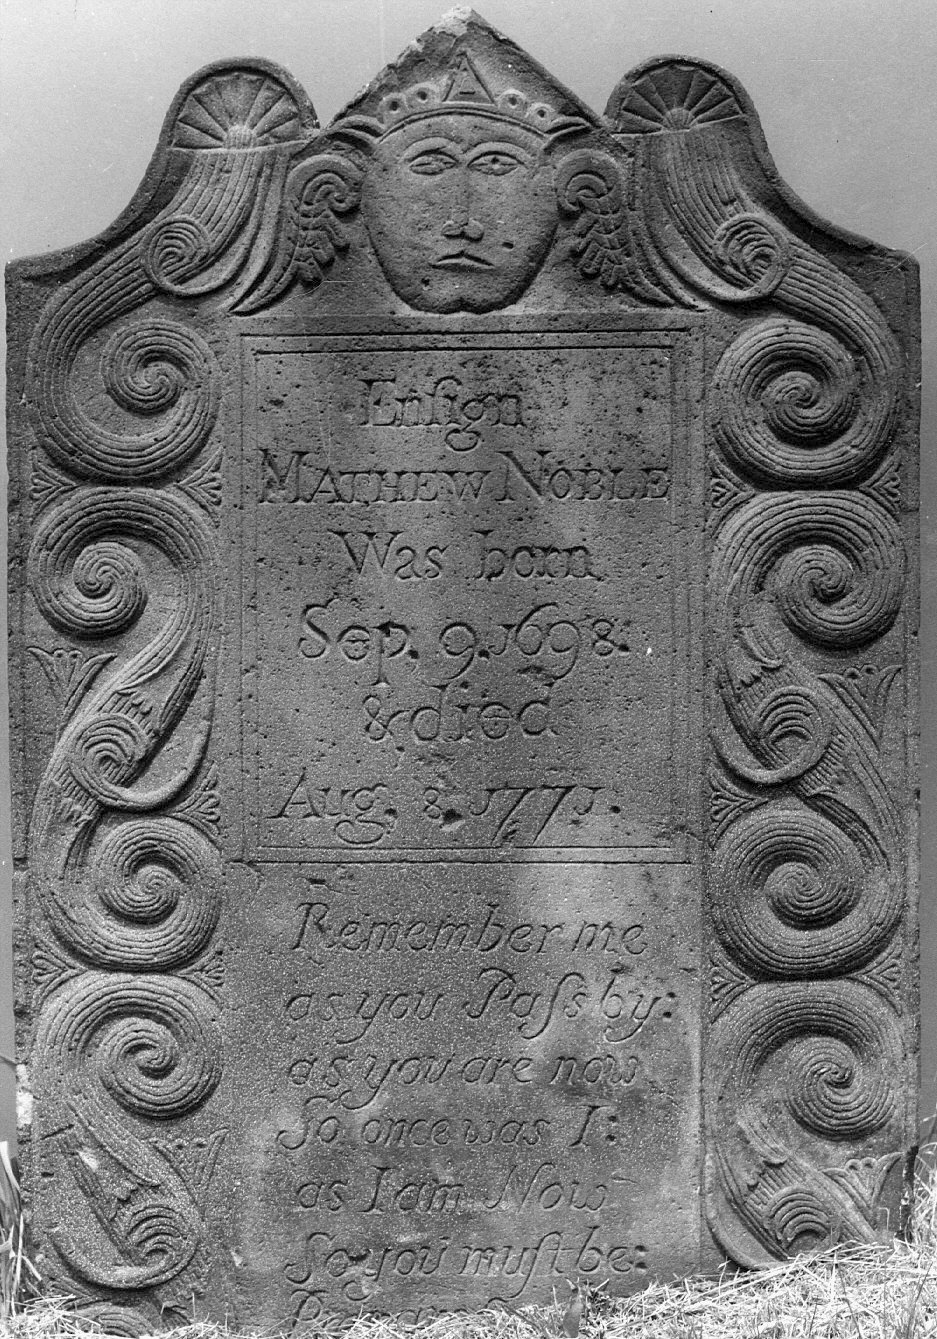 Enſign
MATHEW NOBLE
Was born
Sep. 9. 1698.
& died
Aug. 8. 1771.
Remember me
as you Paſs by:
as you are now
ſo once was I:
as I am Now
So you muſt be: